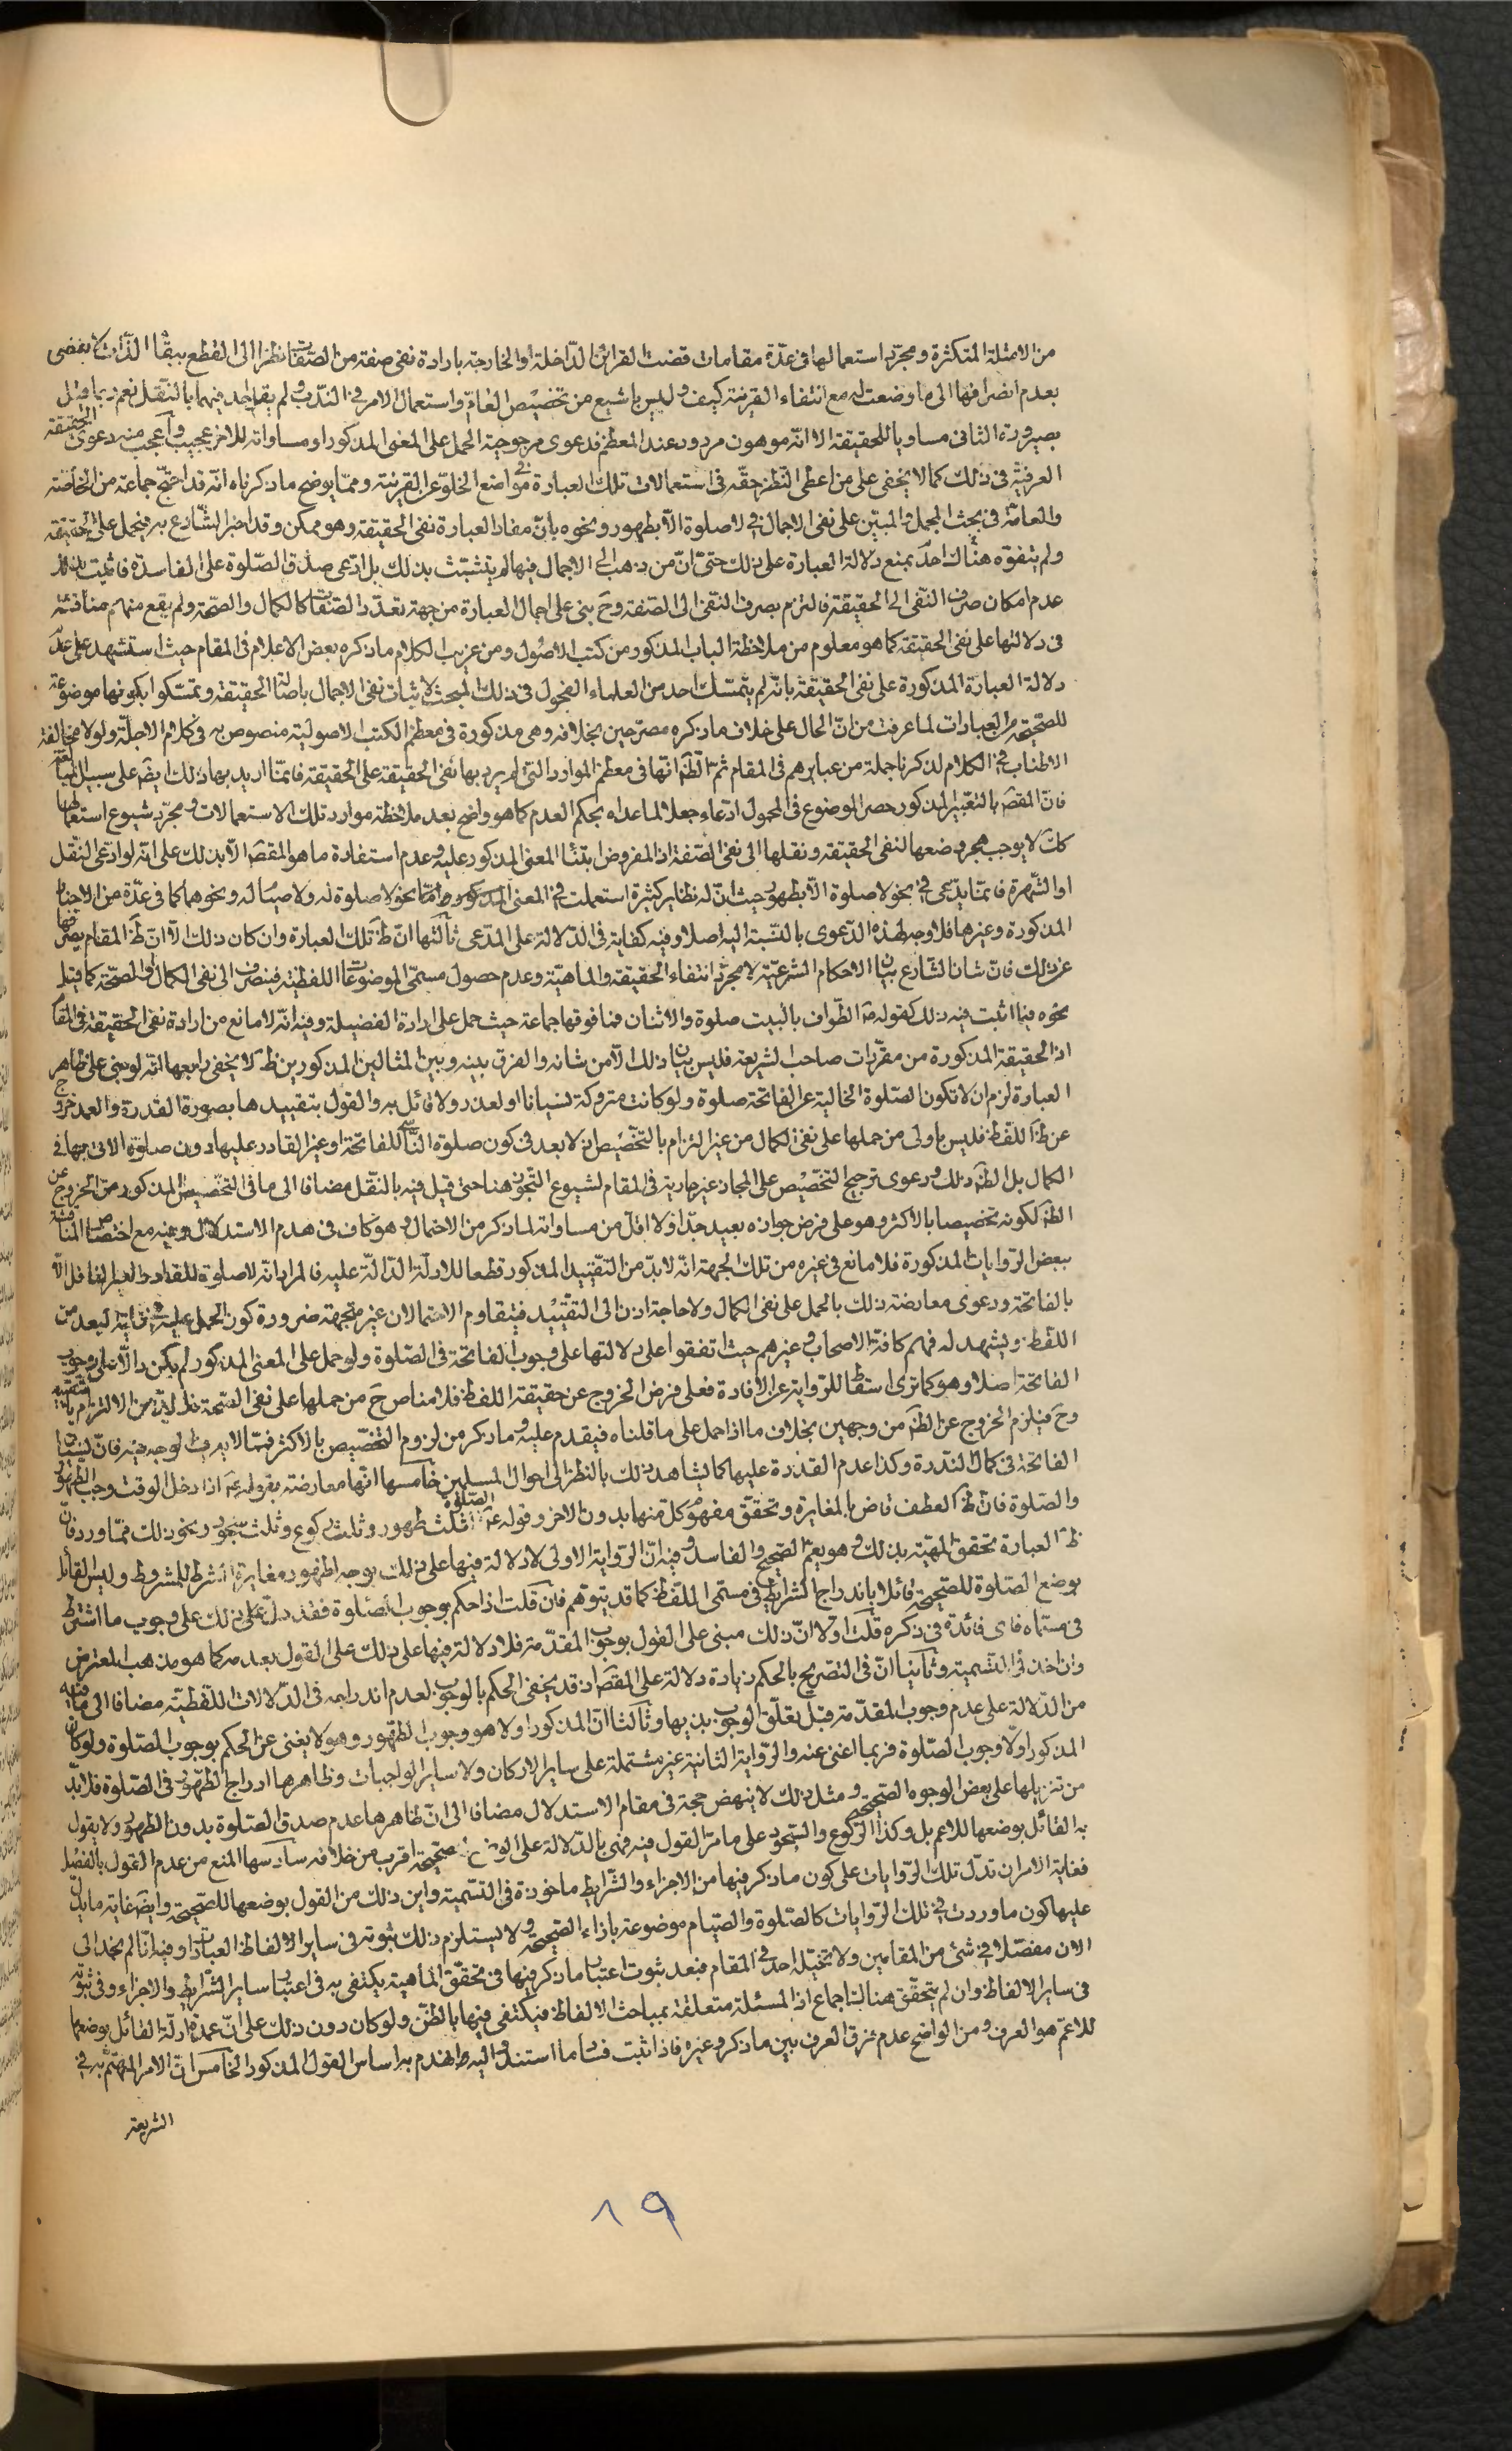 من الامثلة المتكثرة ومجرّد استعمالها فى عدّة مقامات قضت القرائن الدّاخلة او الخارجة بارادة نفى صفة من الصّفات نظرا الى القطع ببقاء الذّات لا يقضى
بعدم انصرافها الى ما وضعت له مع انتفاء القرينة كيف وليس باشيع من تخصيص العامّ واستعمال الامر فى النّدب ولم يقل احد فيهما بالنّقل نعم ربما قيل
بصيرورة الثانى مساويا للحقيقة الّا انّه موهون مردود عند المعظم فدعوى مرجوحيّة الحمل على المعنى المذكور او مساواته للاخر عجيب واعجب منه دعوى الحقيقة
العرفيّة فى ذلك كما لا يخفى على من اعطى النّظر حقّه فى استعمالات تلك العبارة فى مواضع الخلوّ عن القرينة وممّا يوضح ما ذكرناه انّه قد احتجّ جماعة من الخاصّة
والعامّة فى بحث المجمل والمبيّن على نفى الاجمال فى لا صلوة الّا بطهور ونحوه بانّ مفاد العبارة نفى الحقيقة وهو ممكن وقد اخبر الشّارع به فيحمل على الحقيقة
ولم يتفوّه هناك احد بمنع دلالة العبارة على ذلك حتّى انّ من ذهب الى الاجمال فيها لم يتشبّث بذلك بل ادّعى صدق الصّلوة على الفاسدة فاثبت بذلك
عدم امكان صرف النّفى الى الحقيقة فالتزم بصرف النّفى الى الصّفة وح بنى على اجمال العبارة من جهة تعدّد الصّفات كالكمال والصّحة ولم يقع منهم مناقشة
فى دلالتها على نفى الحقيقة كما هو معلوم من ملاحظة الباب المذكور من كتب الاصول ومن غريب الكلام ما ذكره بعض الاعلام فى المقام حيث استشهد على عدم
دلالة العبارة المذكورة على نفى الحقيقة بانّه لم يتمسّك احد من العلماء الفحول فى ذلك المبحث لاثبات نفى الاجمال باصالة الحقيقة وتمسّكوا بكونها موضوعة
للصّحيحة من العبادات لما عرفت من انّ الحال على خلاف ما ذكره مصرّحين بخلافه وهى مذكورة فى معظم الكتب الاصوليّة منصوص به فى كلام الاجلّة ولولا مخافة
الاطناب فى الكلام لذكرنا جملة من عبايرهم فى المقام ثمّ الظّ انّها فى معظم الموارد التى لم يرد بها نفى الحقيقة على الحقيقة فانّما اريد بها ذلك ايضا على سبيل المبالغة
فانّ المقصود بالتّعبير المذكور حصر الموضوع فى المحمول ادّعاء بجعل ما عداه بحكم العدم كما هو واضح بعد ملاحظة موارد تلك الاستعمالات ومجرّد شيوع استعمالها
كك لا يوجب هجر وضعها لنفى الحقيقة ونقلها الى نفى الصّفة اذ المفروض ابتناء المعنى المذكور عليه وعدم استفادة ما هو المقصود الّا بذلك على انّه لو ادّعى النّقل
او الشّهرة فانّما يدّعى فى نحو لا صلوة الّا بطهور حيث انّ له نظاير كثيرة استعملت فى المعنى المذكور وامّا نحو لا صلوة له ولا صيام له ونحوهما كما فى عدّة من الاخبار
المذكورة وغيرها فلا وجه لهذه الدّعوى بالنّسبة اليه اصلا وفيه كفاية فى الدّلالة على المدّعى ثالثها انّ ظ تلك العبارة وان كان ذلك الّا انّ ظ المقام يصرفها
عن ذلك فانّ شان الشّارع بيان الاحكام الشرعيّة لا مجرّد انتفاء الحقيقة والماهيّة وعدم حصول مسمّى الموضوعات اللفظيّة فينصرف الى نفى الكمال او الصّحة كما قيل
نحوه فيما اثبت فيه ذلك كقوله ص الطّواف بالبيت صلوة والاثنان فما فوقها جماعة حيث حمل على ارادة الفضيلة وفيه انّه لا مانع من ارادة نفى الحقيقة فى المقام
اذ الحقيقة المذكورة من مقرّرات صاحب الشريعة فليس بيان ذلك الّا من شانه والفرق بينه وبين المثالين المذكورين ظ لا يخفى رابعها انّه لو بنى على ظاهر
العبارة لزم ان لا تكون الصّلوة الخالية عن الفاتحة صلوة ولو كانت متروكة نسيانا او لعذر ولا قائل به والقول بتقييدها بصورة القدرة والعمد خروج
عن ظ اللّفظ فليس باولى من حملها على نفى الكمال من غير التزام بالتّخصيص اذ لا بعد فى كون صلوة النّاسى للفاتحة او غير القادر عليها دون صلوة الاتى بها فى
الكمال بل الظّ ذلك ودعوى ترجيح التّخصيص على المجاز غير جارية فى المقام لشيوع التّجوّز هنا حتى قيل فيه بالنّقل مضافا الى ما فى التّخصيص المذكور من الخروج عن
الظّ لكونه تخصيصا بالاكثر وهو على فرض جوازه بعيد جدّا فلا اقلّ من مساواته لما ذكر من الاحتمال وهو كاف فى هدم الاستدلال وفيه مع اختصاص المناقشة
ببعض الرّوايات المذكورة فلا مانع فى غيره من تلك الجهة انّه لا بدّ من التّقييد المذكور قطعا للادلّة الدّالّة عليه فالمراد انّه لا صلوة للقادر الغير الغافل الّا
بالفاتحة ودعوى معارضة ذلك بالحمل على نفى الكمال ولا حاجة اذن الى التّقييد فيتقاوم الاحتمالان غير متّجهة ضرورة كون الحمل عليه فى غاية البعد من
اللّفظ ويشهد له فهم كافة الاصحاب وغيرهم حيث اتّفقوا على دلالتها على وجوب الفاتحة فى الصّلوة ولو حمل على المعنى المذكور لم يكن دالّا على وجوب
الفاتحة اصلا وهو كما ترى اسقاط للرّواية عن الافادة فعلى فرض الخروج عن حقيقة اللفظ فلا مناص ح من حملها على نفى الصّحة فلا بدّ من الالتزام بالتّقييد
وح فيلزم الخروج عن الظّ من وجهين بخلاف ما اذا حمل على ما قلناه فيقدم عليه وما ذكر من لزوم التّخصيص بالاكثر فممّا لا يعرف لوجهه فانّ نسيان
الفاتحة فى كمال النّدرة وكذا عدم القدرة عليها كما يشاهد ذلك بالنّظر الى احوال المسلمين خامسها انّها معارضة بقوله ع اذا دخل الوقت وجب الطّهور
والصّلوة فانّ ظ العطف قاض بالمغايرة وتحقّق مفهوم كلّ منها بدون الاخر وقوله ع الصّلوة ثلثة ثلث طهور وثلث ركوع وثلث سجود ونحو ذلك ممّا ورد فانّ
ظ العبارة تحقّق المهيّة بذلك وهو يعمّ الصّحيح والفاسد وفيه انّ الرّواية الاولى لا دلالة فيها على ذلك بوجه لظهور مغايرة الشرط للمشروط وليس القائل
بوضع الصّلوة للصّحيحة قائلا باندراج الشرايط فى مسمّى اللّفظ كما قد يتوهّم فان قلت اذا حكم بوجوب الصّلوة فقد دلّ على ذلك على وجوب ما اشترط
فى مسمّاه فاى فائدة فى ذكره قلت اوّلا انّ ذلك مبنى على القول بوجوب المقدّمة فلا دلالة فيها على ذلك على القول بعدمه كما هو مذهب المعترض
وان اخذ فى التّسمية وثانيا انّ فى التصريح بالحكم زيادة دلالة على المقصود اذ قد يخفى الحكم بالوجوب لعدم اندراجه فى الدّلالات اللّفظيّة مضافا الى ما فيه
من الدّلالة على عدم وجوب المقدّمة قبل تعلّق الوجوب بذيها وثالثا انّ المذكور اوّلا هو وجوب الطّهور وهو لا يغنى عن الحكم بوجوب الصّلوة ولو كان
المذكور اوّلا وجوب الصّلوة فربما اغنى عنه والرّواية الثانية غير مشتملة على ساير الاركان ولا ساير الواجبات وظاهرها ادراج الطّهور فى الصّلوة فلا بدّ
من تنزيلها على بعض الوجوه الصّحيحة ومثل ذلك لا ينهض حجة فى مقام الاستدلال مضافا الى انّ ظاهرها عدم صدق الصّلوة بدون الطّهور ولا يقول
به القائل بوضعها للاعم بل وكذا الرّكوع والسّجود على ما مرّ القول فيه فهى بالدّلالة على الوضع للصحيحة اقرب من خلافه سادسها المنع من عدم القول بالفصل
فغاية الامر ان تدلّ تلك الرّوايات على كون ما ذكر فيها من الاجزاء والشّرايط ماخوذة فى التّسمية واين ذلك من القول بوضعها للصّحيحة وايضا غاية ما يدلّ
عليها كون ما وردت فى تلك الرّوايات كالصّلوة والصّيام موضوعة بازاء الصّحيحة ولا يستلزم ذلك ثبوته فى ساير الالفاظ العبادات وفيه انّا لم نجد الى
الان مفصّلا فى شئ من المقامين ولا تخيّله احد فى المقام فبعد ثبوت اعتبار ما ذكر فيها فى تحقّق الماهية يكتفى به فى اعتبار ساير الشّرايط والاجزاء وفى ثبوته
فى ساير الالفاظ وان لم يتحقّق هنالك اجماع اذ المسئلة متعلقة بمباحث الالفاظ فيكتفى فيها بالظنّ ولو كان دون ذلك على انّ عمدة ادلّة القائل بوضعها
للاعمّ هو العرف ومن الواضح عدم فرق العرف بين ما ذكر وغيره فاذا ثبت فساد ما استند اليه انهدم به اساس القول المذكور الخامس انّ الامر المهتمّ به فى
الشريعة
١٩